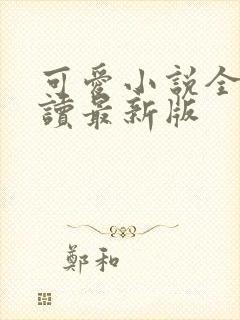 可愛小說全
讀最新版
鄭和